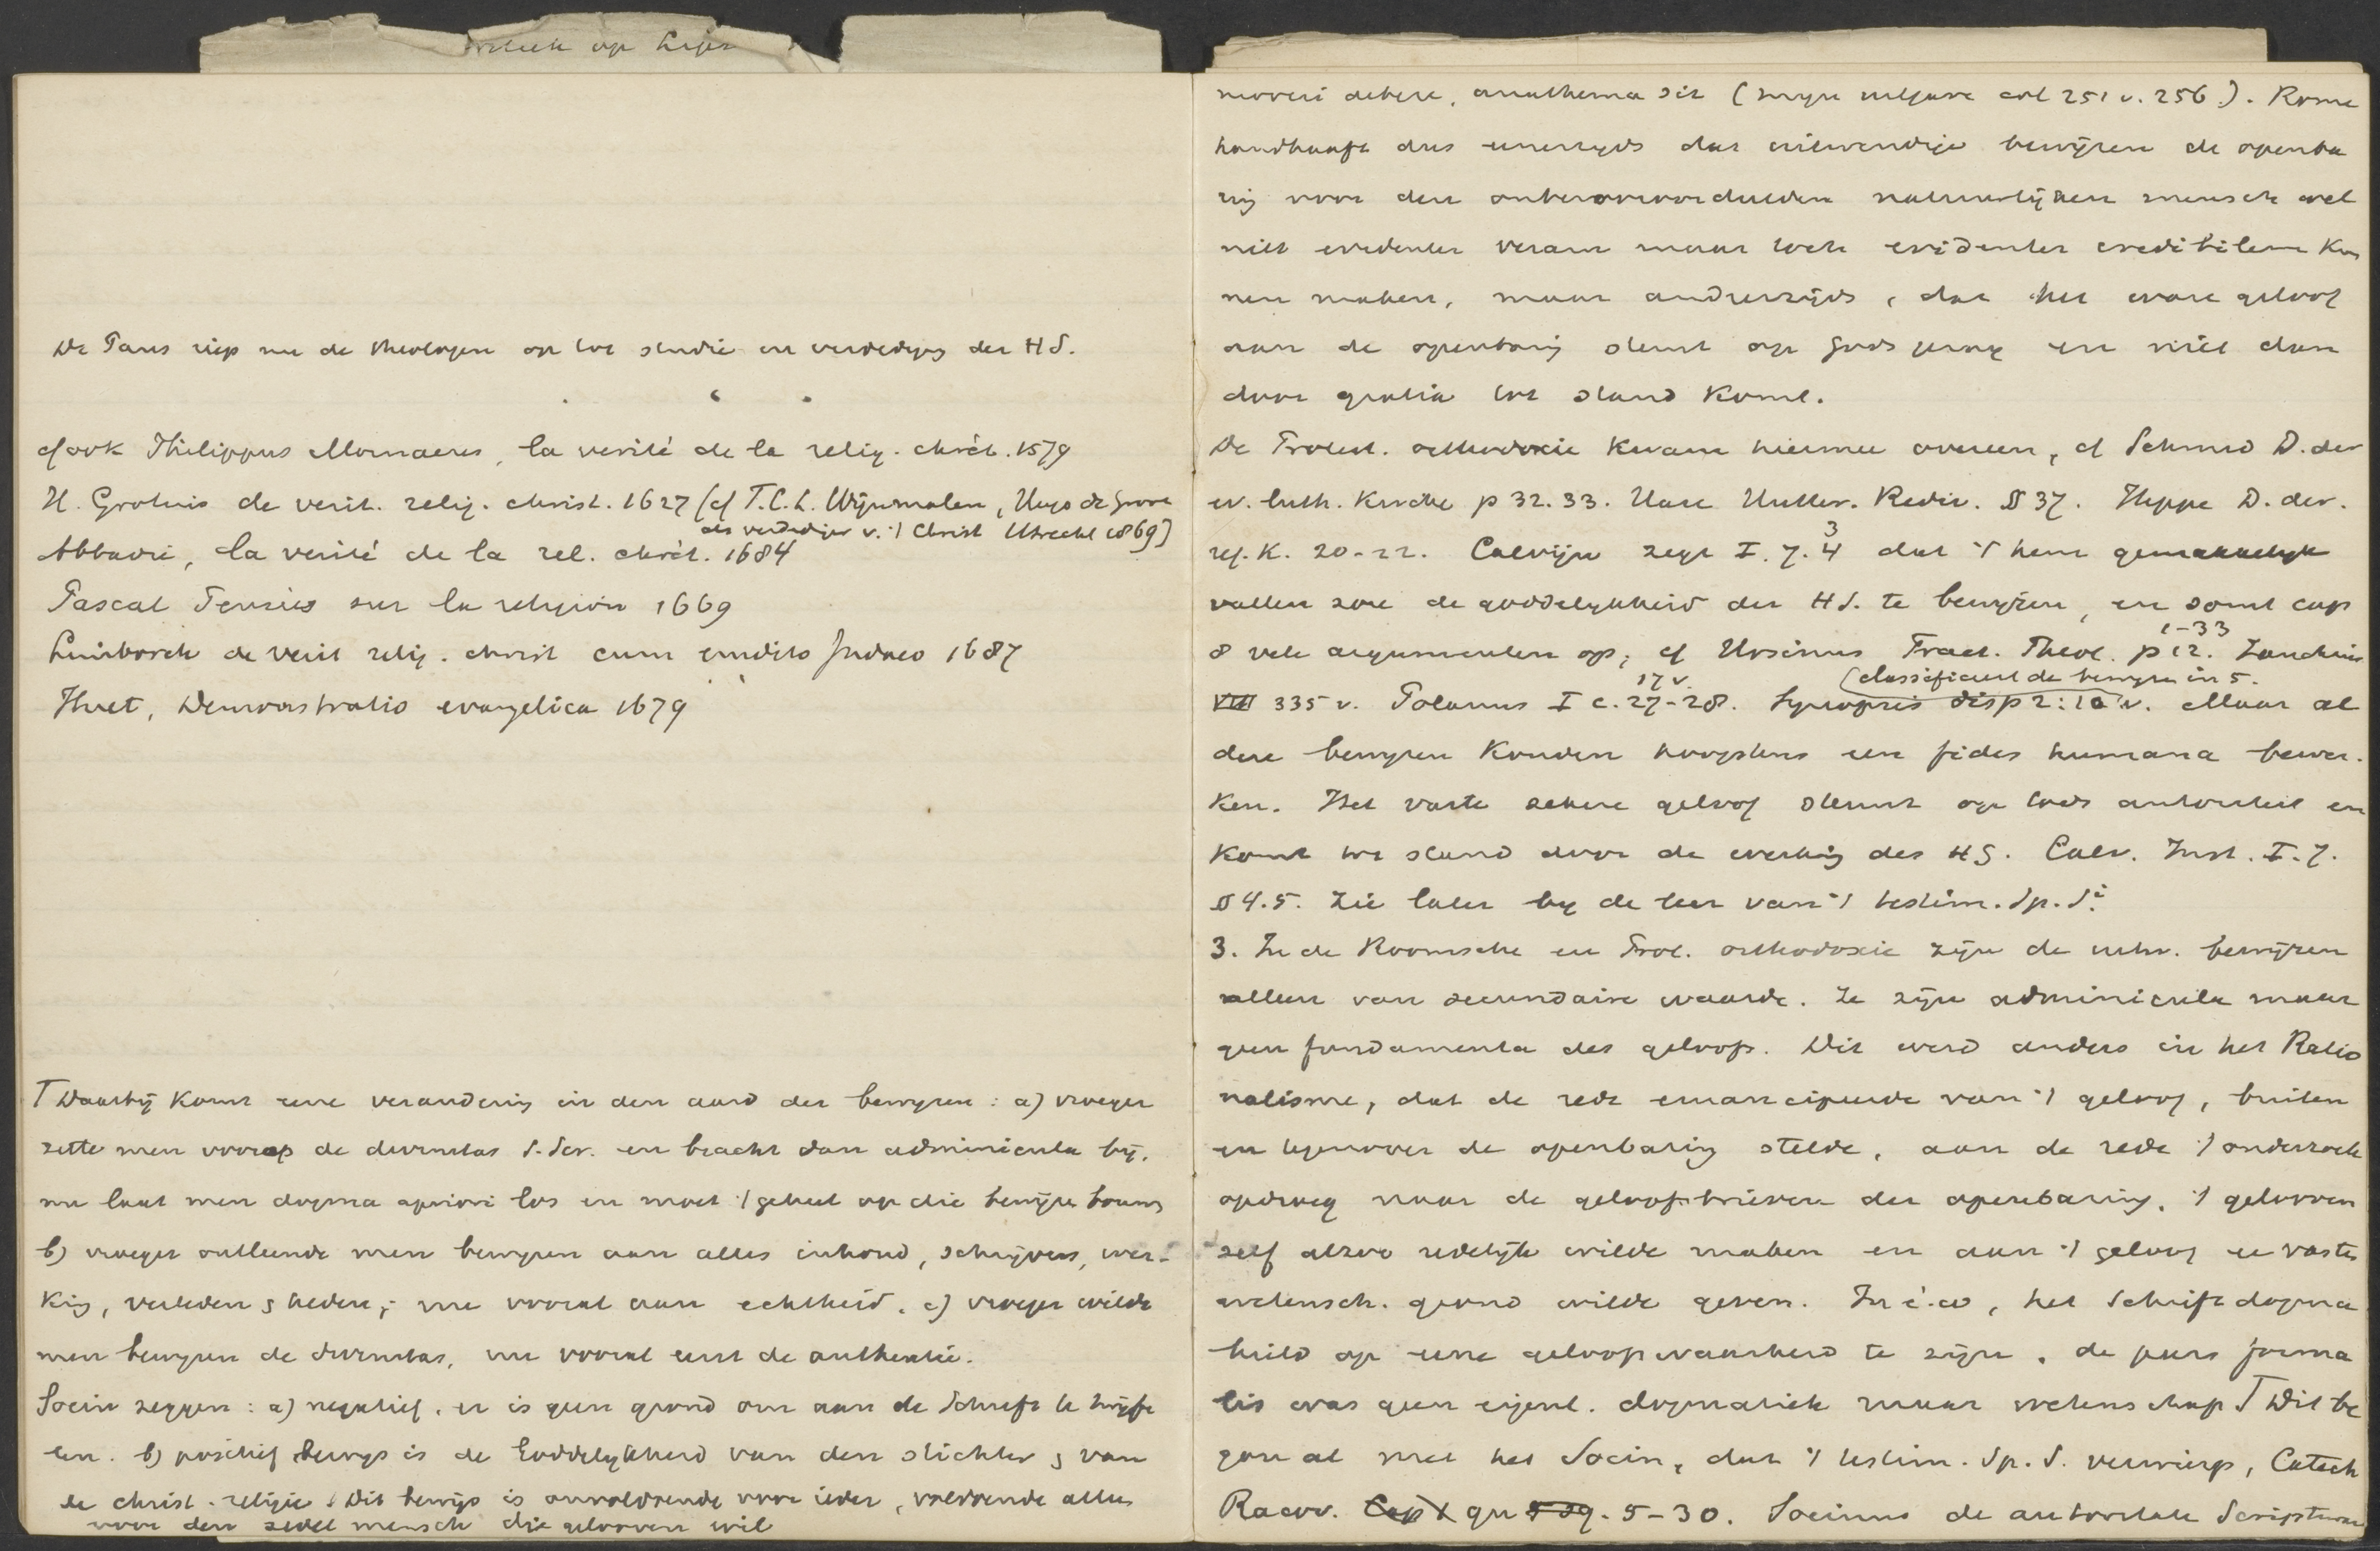 op
De Paus riep nu de theologen op tot studie en verdediging der H S.
cf ook Philippus Mornaeus, la verité de la relig. chrét. 1579
H. Grotius de verit. relig. christ. 1627 (cf T.C.L. Wijnmalen, Hugo de Groot
als verdediger v. 't Christ Utrecht 1869)
Abbadie, la verité de la rel. chrét. 1684
Pascal Pensées sur la religion 1669
Limborch de verit relig. christ cum erudito Judaeo 1687
Huet, Demonstratio evangelica 1679
Γ Daarbij komt eene verandering in den aard der bewijzen: a) vroeger
zette men voorop de divinitas S. Scr. en bracht dan adminicula bij.
nu laat men dogma apriori los en moet 't geheel op die bewijzen bouwen
b) vroeger ontleende men bewijzen aan alles inhoud, schrijvers, wer-
king, verleden & heden; nu vooral aan echtheid. c) vroeger wilde
men bewijzen de divinitas, nu vooral eerst de authentie.
Socin zeggen: a) negatief. er is geen grond om aan de Schrift te twijfe
len. b) positief bewijs is de Goddelijkheid van den stichter & van
de christ. religie. Dit bewijs is onvoldoende voor ieder, voldoende alleen
voor den mensch die gelooven wil
moveri debere, anathema sit ( col 251 v. 256). Rome
handhaaft dus eenerzijds dat uitwendige bewijzen de openba
ring voor den onbevooroordeelden natuurlijken mensch wel
niet evidenter veram maar toch evidenter credibilem kun
nen maken, maar anderzijds, dat het ware geloof
aan de openbaring steunt op Gods gezag en niet dan
door gratia tot stand komt.
De Protest. orthodoxie kwam hiermee overeen, cf Schmid D. der
ev. luth. Kirche p 32. 33. Hase Hutter. Rediv. § 37. Heppe D. der.
ref. K. 20-22. Calvijn zegt I. 7. 3 4 dat 't hem gemakkelijk
vallen zou de goddelijkheid der H S. te bewijzen, en somt cap
8 vele argumenten op; cf Ursinus Tract. Theol. p 1-33 12. Zanchius
(classificeert de bewijzen in 5.
VIII 335 v. Polanus I c. 17 v. 27-28. Synopsis disp 2:10 v. Maar al
deze bewijzen konden hoogstens een fides humana bewer-
ken. Het vaste zekere geloof steunt op Gods autoriteit en
komt tot stand door de werking des H G. Calv. Inst. I. 7.
§ 4. 5. Zie later bij de leer van 't testim. Sp. Si.
3. In de Roomsche en Prot. orthodoxie zijn de uitw. bewijzen
alleen van secundaire waarde. Ze zijn adminicula maar
geen fundamenta des geloofs. Dit werd anders in het Ratio
nalisme, dat de rede emancipeerde van 't geloof, buiten
en tegenover de openbaring stelde, aan de rede 't onderzoek
opdroeg naar de geloofsbrieven der openbaring, 't gelooven
zelf alzoo redelijk wilde maken en aan 't geloof een vasten
wetensch. grond wilde geven. In é.w, het Schriftdogma
hield op eene geloofswaarheid te zijn, de pars forma
lis was geen eigenl. dogmatiek maar wetenschap Γ Dit be
gon al met het Socin, dat 't testim. Sp. S. verwierp, Catech
Racov. qu 5-30. Socinus de autoritate Scripturae